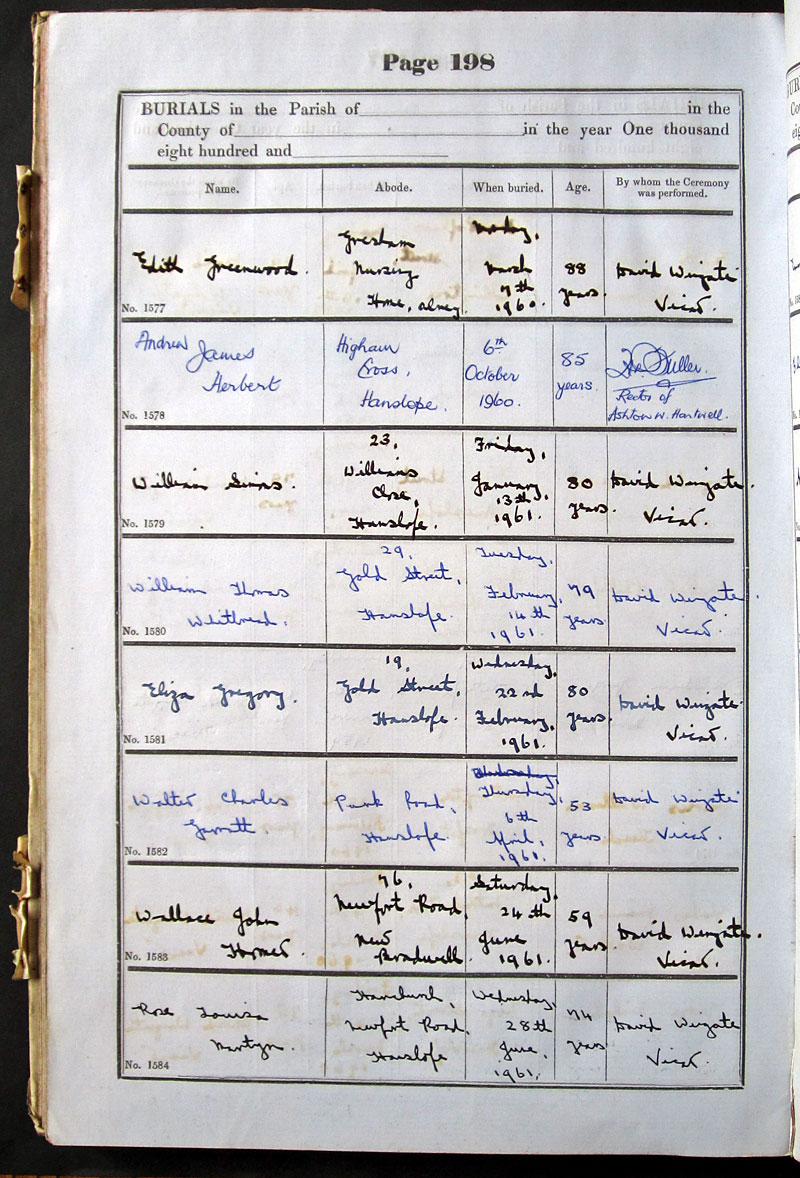 Page 198
BURIALS in the Parish of in the
County of in the year One thousand
eight hundred and
Name. Abode. When buried. Age. By whom the Ceremony was performed.
Edith Greenwood.
Gresham
Nursing
Home, Olney
March
7th
1960.
88
years.
David Wingate
Vicar.
No. 1577
Andrew James
Herbert
Higham
Cross,
Hanslope.
6th
October
1960.
85
years.
Fuller.
Rector of
Ashton w. Hartwell.
No. 1578
William Simms.
23,
Williams
Close,
Hanslope.
Friday,
January,
13th,
1961.
80
years.
David Wingate.
Vicar.
No. 1579
William Thomas
Whitbread.
29,
Gold Street,
Hanslope.
Tuesday,
February,
14th
1961.
79
years
David Wingate.
Vicar.
No. 1580
Eliza Gregory.
19,
Gold Street,
Hanslope.
Wednesday,
22nd
February,
1961.
80
years.
David Wingate.
Vicar.
No. 1581
Walter Charles
Garratt
Park Road,
Hanslope.
Wednesday,
Thursday,
6th
April,
1961.
53
years
David Wingate
Vicar.
No. 1582
Wallace John
76,
Newport Road,
New
Bradwell.
Saturday,
24th
June
1961.
59
years.
David Wingate.
Vicar.
No. 1583
Rose Louisa
Martyn.
Newport Road,
Hanslope
Wednesday,
28th
June,
1961.
74
years
David Wingate
Vicar.
No. 1584